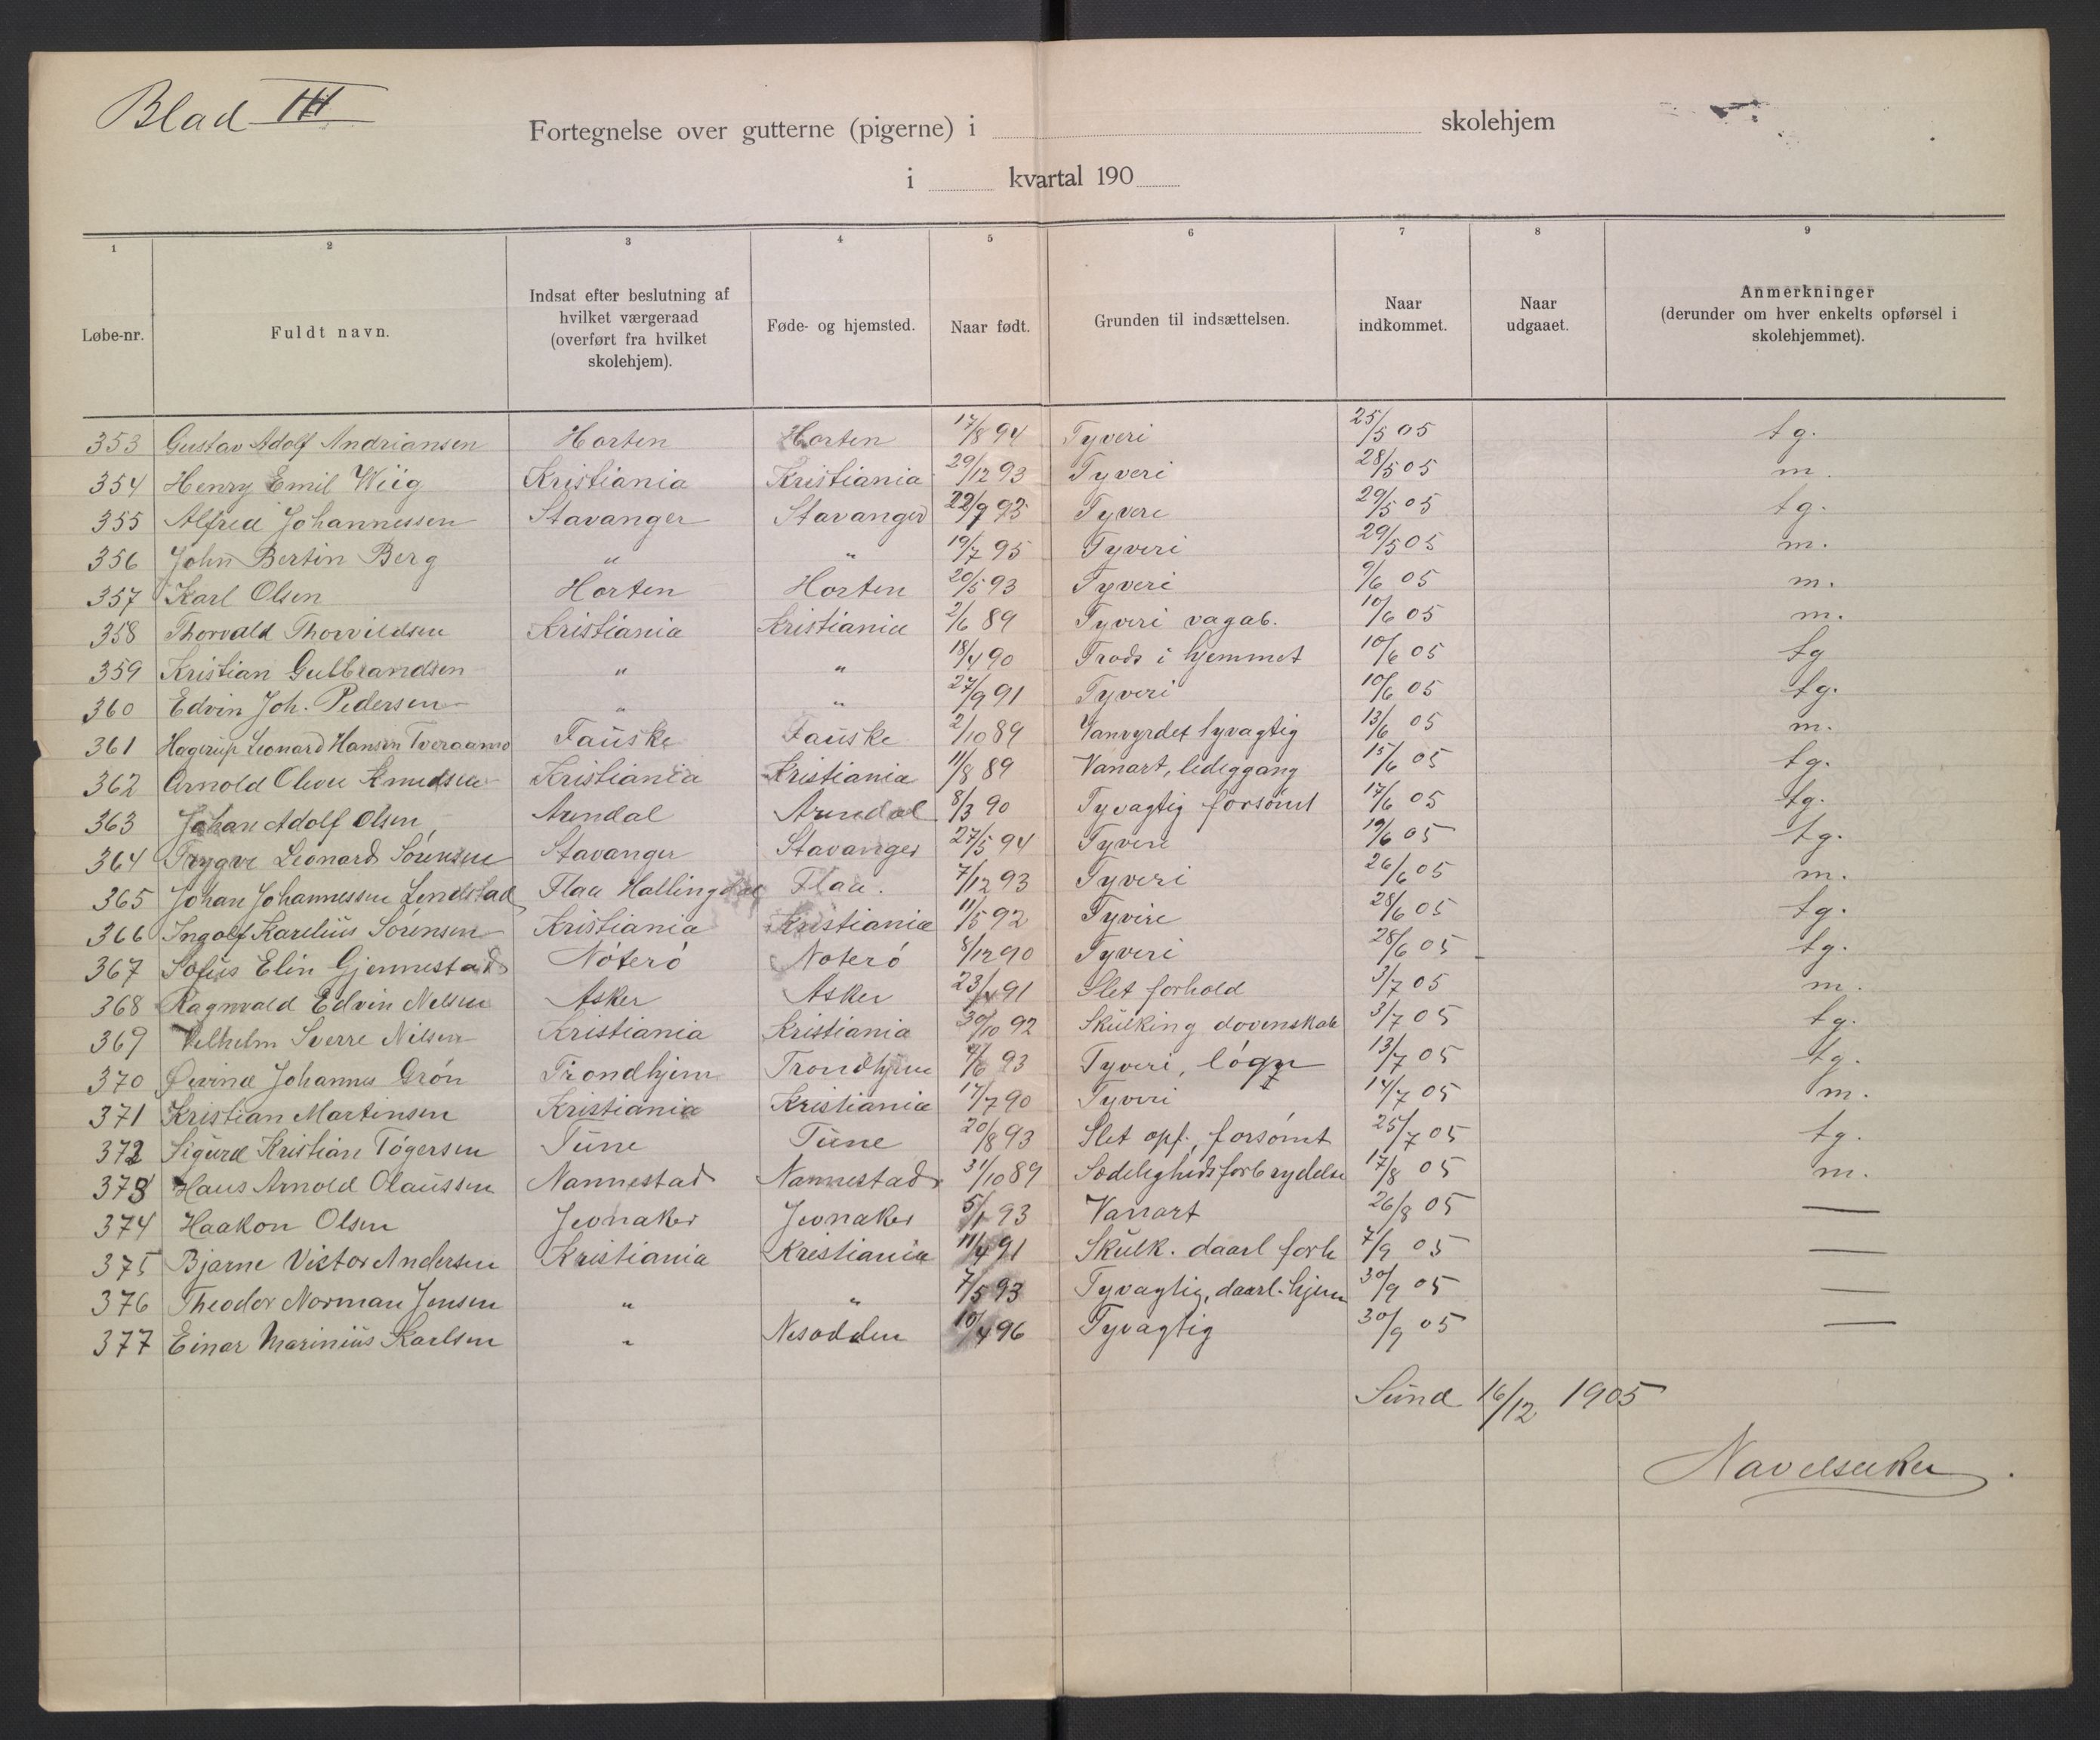 Blad III
Fortegnelse over gutterne (pigerne) i skolehjem
i kvartal 190
1 2 3 4 5 6 7 8 9
Løbe-nr. Fuldt navn. Indsat efter beslutning af hvilket værgeraad (overført fra hvilket skolehjem). Føde- og hjemsted. Naar født. Grunden til indsættelsen. Naar indkommet. Naar udgaaet. Anmerkninger (derunder om hver enkelts opførsel i skolehjemmet).
353 Gustav Adolf Andriansen Horten Horten 17/8 94 Tyveri 25/5 05 tg.
354 Henry Emil Wiig Kristiania Kristiania 29/12 93 Tyveri 28/5 05 m.
355 Alfred Johannessen Stavanger Stavanger 22/9 93 Tyveri 29/5 05 tg.
356 John Bertin Berg " " 19/7 95 Tyveri 29/5 05 m.
357 Karl Olsen Horten Horten 20/5 93 Tyveri 9/6 05 m.
358 Thorvald Thorvildsen Kristiania Kristiania 2/6 89 Tyveri vagab. 10/6 05 m.
359 Kristian Gulbrandsen " " 18/4 90 Trods i hjemmet 10/6 05 tg
360 Edvin Joh. Pedersen " " 27/9 91 Tyveri 10/6 05 tg.
361 Hagerup Leonard Hansen Tveraamo Fauske Fauske 2/10 89 Vanvyrdet tyvagtig 13/6 05 m.
362 Arnold Oliver Knudsen Kristiania Kristiania 11/8 89 Vanart, lediggang 15/6 05 tg.
363 Johan Adolf Olsen Arendal Arendal 8/3 90 Tyvagtig forsømt 17/6 05 tg.
364 Trygve Leonard Sörensen Stavanger Stavanger 27/5 94 Tyveri 19/6 05 tg.
365 Johan Johannessen Lindstad Flaa Hallingdal Flaa. 7/12 93 Tyveri 26/6 05 m.
366 Ingolf Karelius Sörensen Kristiania Kristiania 11/5 92 Tyveri 28/6 05 tg.
367 Sofus Elin Gjennestad Nöterö Noterö 8/12 90 Tyveri 28/6 05 tg.
368 Ragnvald Edvin Nelsen Asker Asker 23/4 91 Slet forhold 3/7 05 m.
369 Vilhelm Sverre Nilsen Kristiania Kristiania 30/10 92 Skulking dovenskab 3/7 05 tg.
370 Øivind Johannes Grön Trondhjem Trondhjem /6 93 Tyveri, lögn 13/7 05 tg.
371 Kristian Martinsen Kristiania Kristiania 17/7 90 Tyveri 14/7 05 m.
372 Sigurd Kristian Tögersen Tune Tune 20/8 93 Slet opf., forsömt 25/7 05 tg.
373 Hans Arnold Olaussen Nannestad Nannestad 31/10 89 Sædelighedsforbrydelse 17/8 05 m.
374 Haakon Olsen Jevnaker Jevnaker 5/1 93 Vanart 26/8 05 —
375 Bjarne Victor Andersen Kristiania Kristiania 11/4 91 Skulk. daarl forh 7/9 05 —
376 Theodor Norman Jensen " " 7/5 93 Tyvagtig, daarl. hjem 30/9 05 —
377 Einar Marinius Karlsen " Nesodden 10/4 96 Tyvagtig 30/9 05 —
Sund 16/12 1905